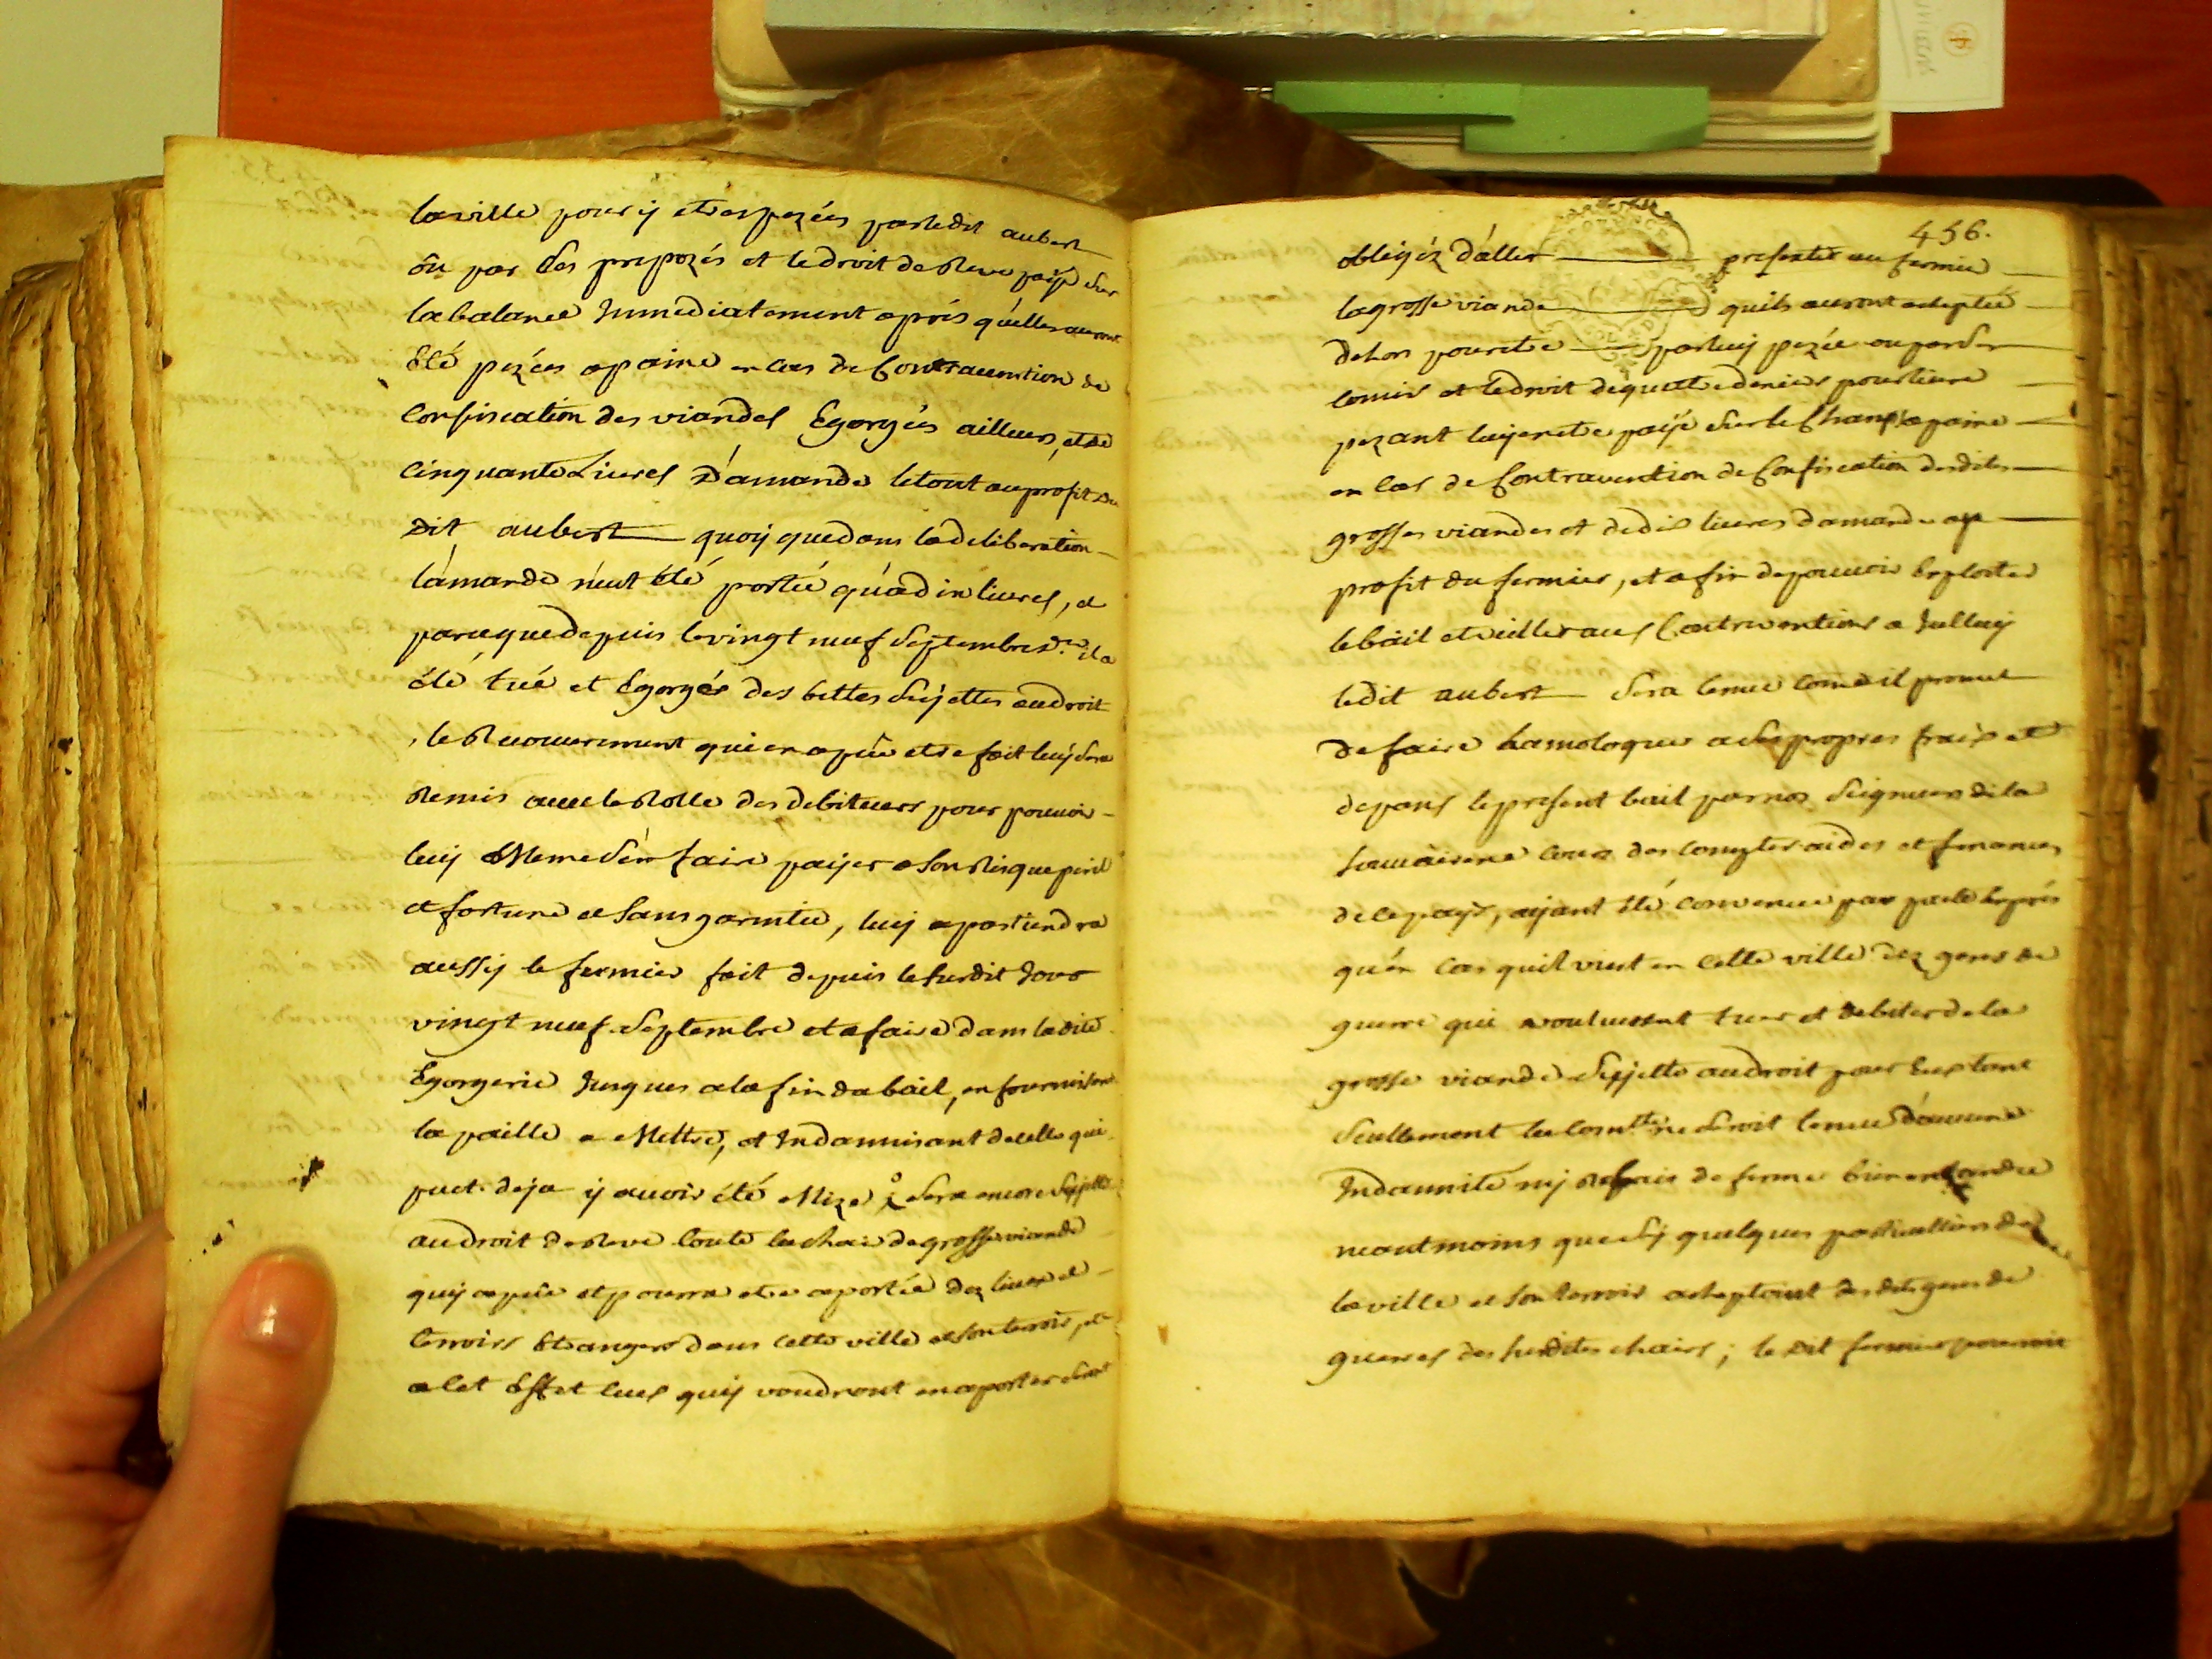 la ville pour y etre pezées par ledit aubert
ôu par ses prepozés et le droit de Reve payé sur
la balance Immediatement aprés qu'elles auront
Eté pezées a paine en cas de Contravention de
Confiscation des viandes Egorgées ailleurs, et de
Cinquante Livres D'amande le tout au profit du
Dit aubert quoy que dans la deliberation
l'amande n'eut été portée qu'a dix livres, et
parceque depuis le vingt neuf Septembre d.er il a
élé tué et Egorgés des bettes Sujettes au droit
, le Recouvrement qui en a pû etre fait luy sera
Remis avec le Rolle des debiteurs pour pouvoir
luy Meme s'en faire payer a son Risque peril
et fortune et sans garantie, luy apartiendra
aussy le fermier fait depuis le susdit Jour
vingt neuf Septembre et a faire dans ladite
Egorgerie Jusques a la fin du bail, en fournissant
la paille a Mettre, et Indannisant de celle qui
put deja y avoir été Mize ; sera encore Sujette
au droit de Reve toute la chair de grosse viande
quy a pû et pourra etre aportée dez lieux et
terroirs Etrangers dans cette ville et son terroir, et
a cet Effet ceux quy voudront en aporter seront
456.
obligéz d'aller presenter au fermier
la grosse viande quils auront acheptée
dehors pour etre par luy pezée ou par son
comis et le droit de quatre deniers pour livre
pezant luy en etre payé sur le Champ a paine
en cas de Contravention de Confiscation desdites
grosses viandes et de dix livres damande au
profit du fermier, et afin de pouvoir Exploiter
le bail et veiller aux Contraventions a Icelluy
ledit aubert sera tenu come il promet
de faire hamologuer a ses propres fraix et
depans le present bail par nos Seigneurs de la
Souvairene Cour des Comptes aides et finances
de ce pays, ayant été convenu par pacte Exprés
qu'en cas quil vint en cette ville dez gens de
guerre qui voulussent tuer et debiter de la
grosse viande Sujette au droit pour Eux tant
Seullement la Com.té ne seroit tenue d'aucune
Indannité ny Rabais de ferme bien entandu
neantmoins que sy quelques particulliers de
la ville et son terroir acheptoint des dits gens de
guerres des susdites chairs ; le dit fermier pourroit